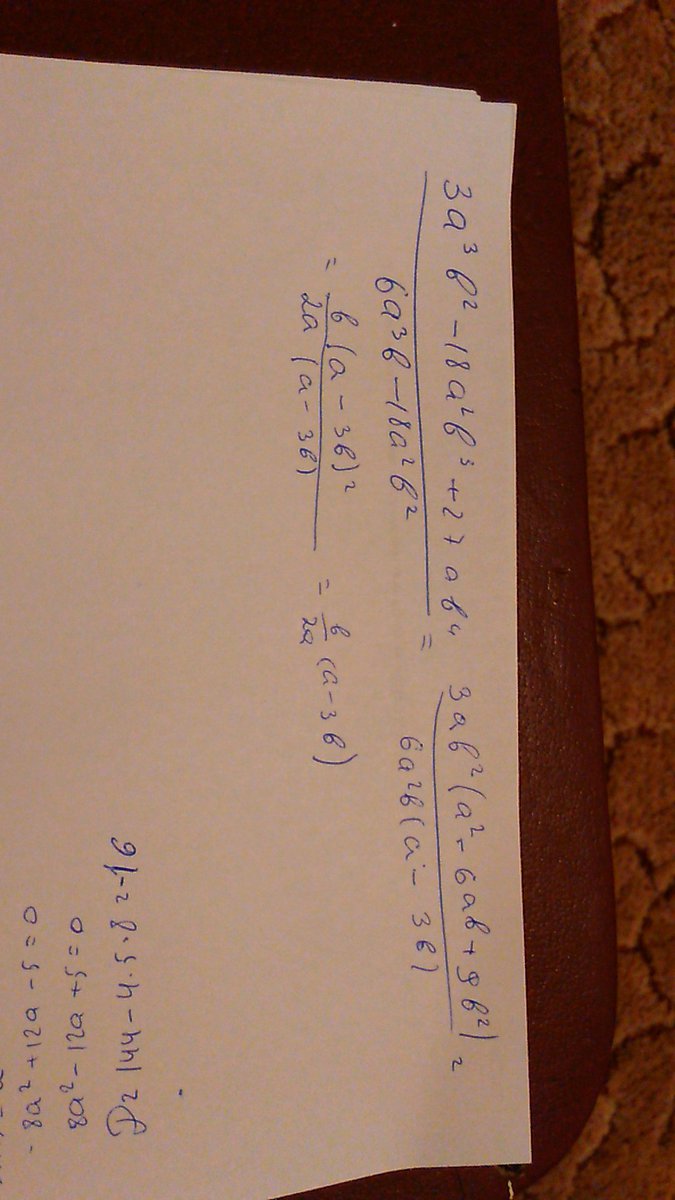 3a³b² - 18a²b³ + 27ab⁴ / 6a³b - 18a²b² = 3ab²(a² - 6ab + 9b²) / 6a²b(a - 3b) =
= b(a - 3b)² / 2a(a - 3b) = b/2a (a - 3b)
-8a² + 12a - 5 = 0
8a² - 12a + 5 = 0
D = 144 - 4·5·8 = -16